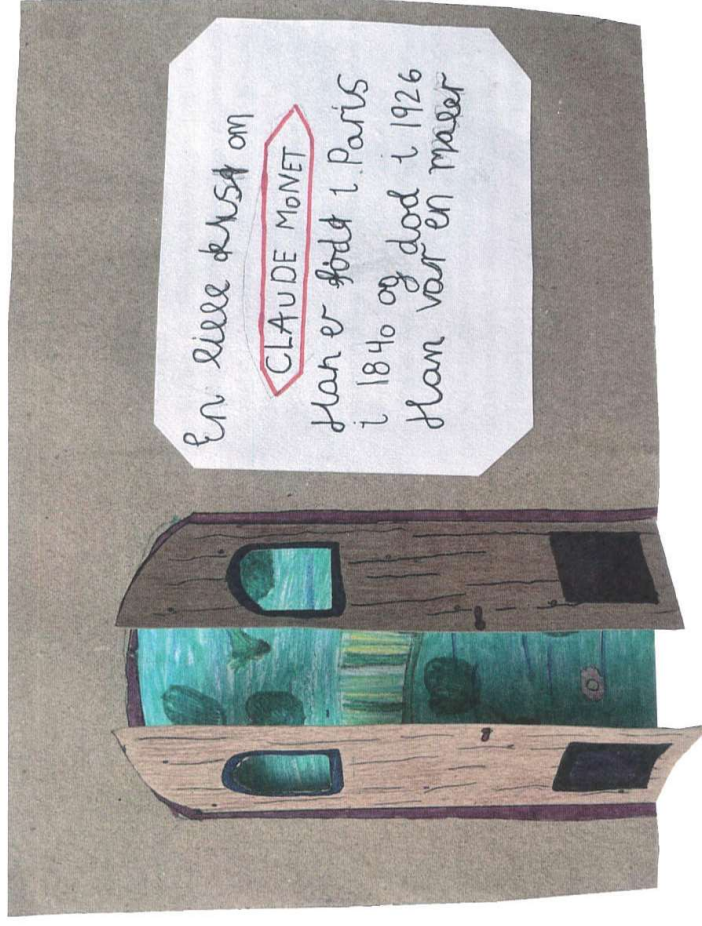 En lille om
CLAUDE MONET
Han er født i Paris
i 1840 og død i 1926
Han var en maler